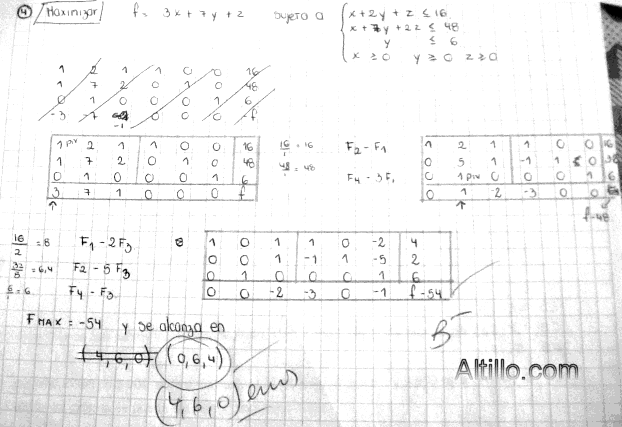 4 Maximizar f= 3x+7y+z sujeto a x+2y+z ≤ 16
x+7y+2z ≤ 48
y ≤ 6
x ≥ 0 y ≥ 0 z ≥ 0
1 2 1 1 0 0 16
1 7 2 0 1 0 48
0 1 0 0 0 1 6
-3 -7 -1 0 0 0 -f
1 piv 2 1 1 0 0 16
1 7 2 0 1 0 48
0 1 0 0 0 1 6
3 7 1 0 0 0 f
16/1 = 16 F2 - F1
48/1 = 48
F4 - 3F1
1 2 1 1 0 0 16
0 5 1 -1 1 0
0 1 piv 0 0 0 1 6
0 1 -2 -3 0 0
f-48
16/2 = 8 F1 - 2F3
32/5 = 6,4 F2 - 5F3
6/1 = 6 F4 - F3
1 0 1 1 0 -2 4
0 0 1 -1 1 -5 2
0 1 0 0 0 1 6
0 0 -2 -3 0 -1 f-54
FMAX = -54 y se alcanza en
(4,6,0) (0,6,4)
(4,6,0)
B-
Altillo.com